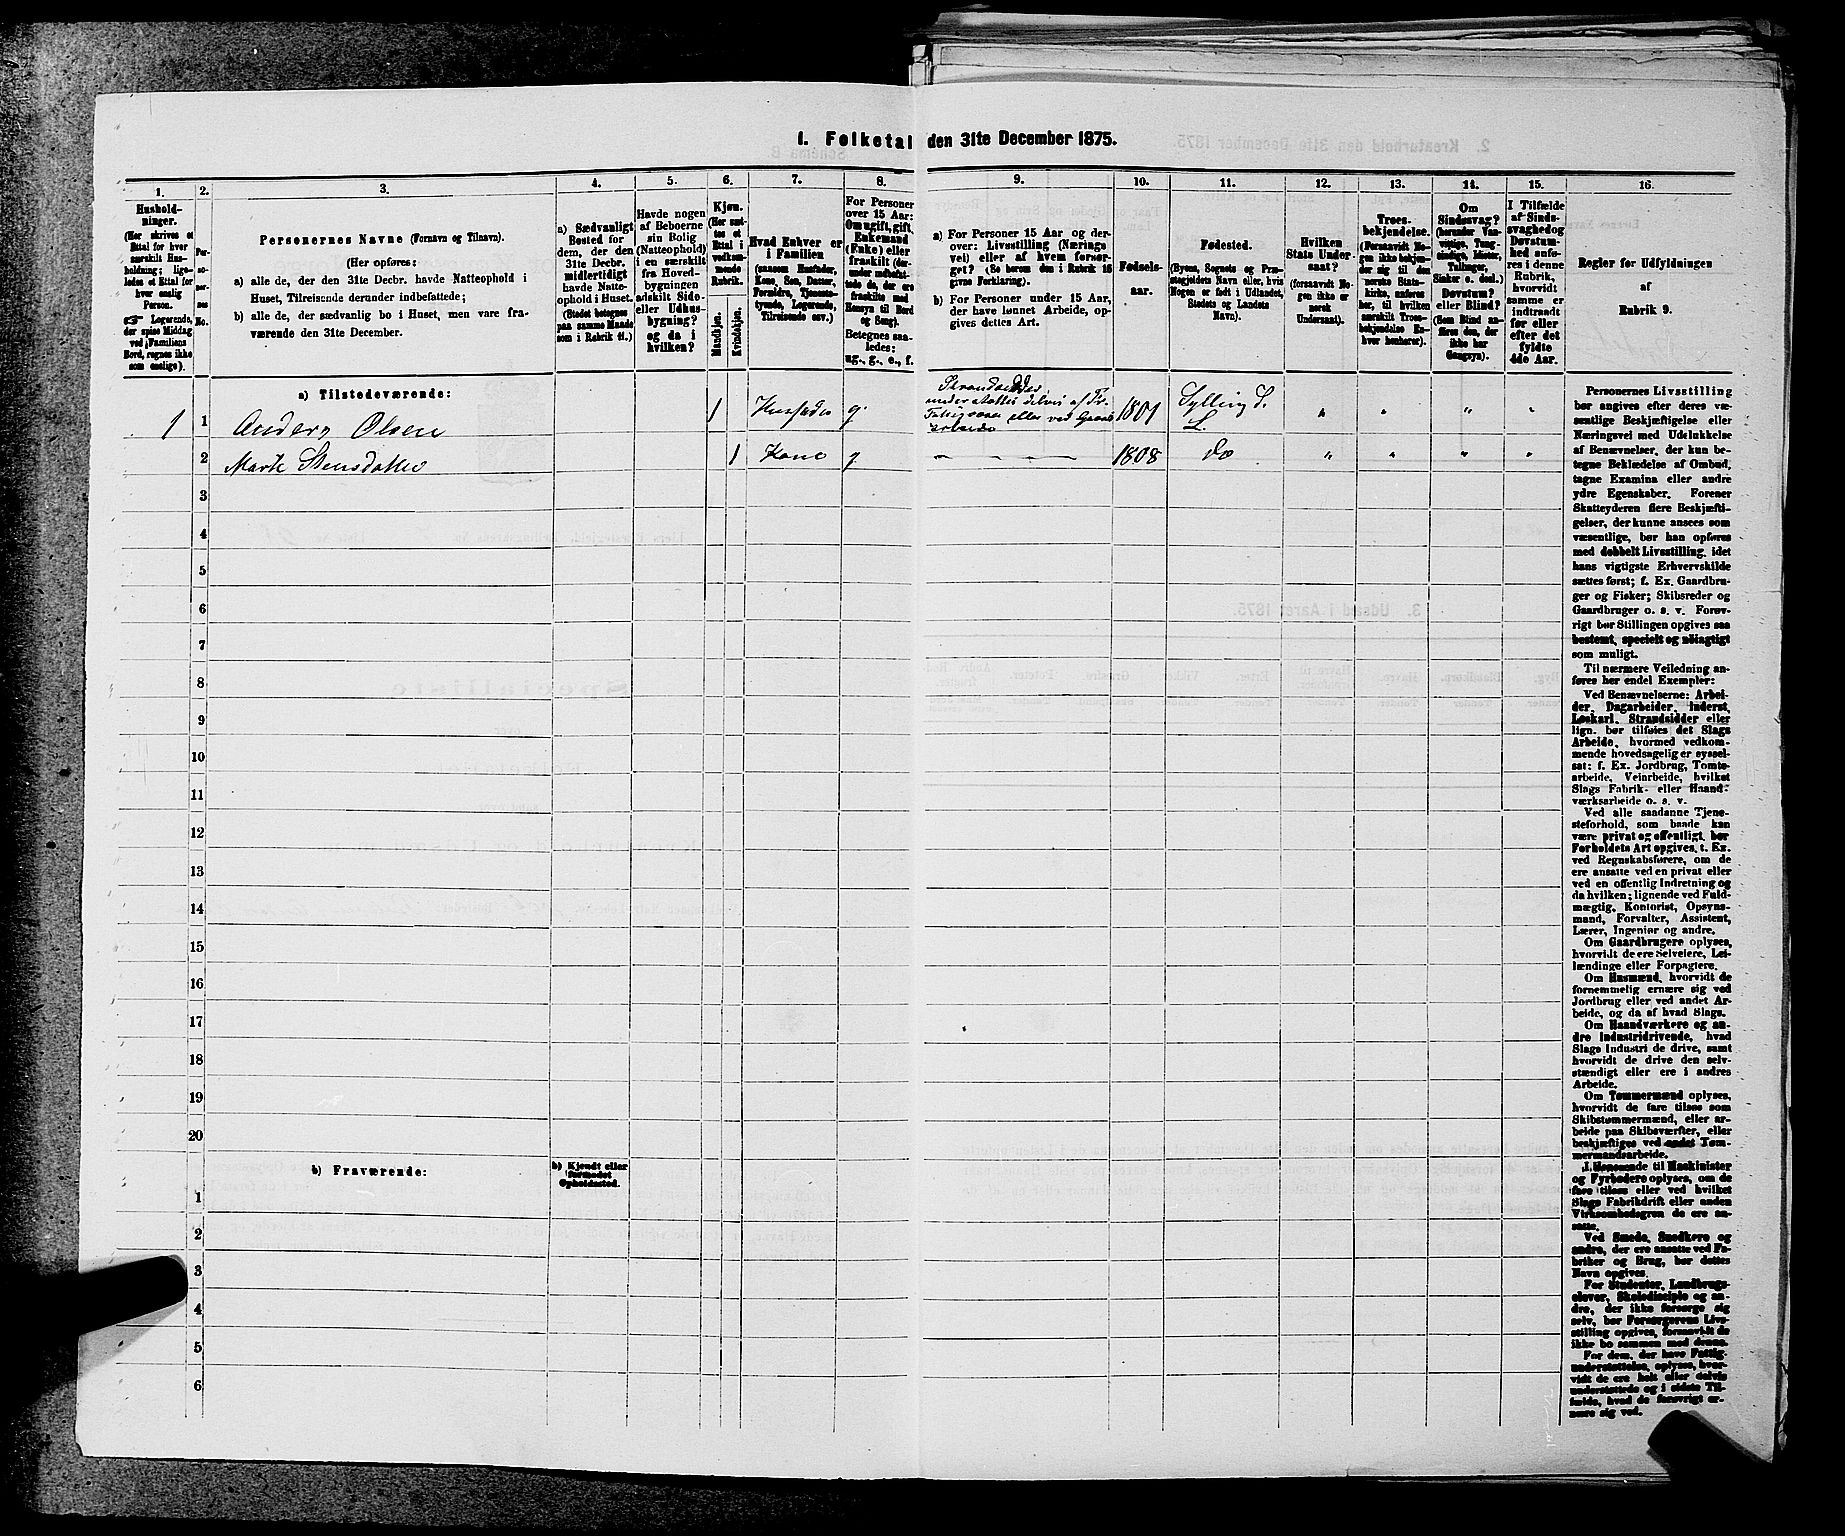 1. Folketal den 31te December 1875.
1.
2.
3.
4.
5.
6.
7.
8.
9.
10.
11.
12.
13.
14.
15.
16.
Hushold-
ninger.
(Her skrives et
Ettal for hver
særskilt Hus-
holdning; lige-
ledes et Ettal for
hver enslig
Person.
☞ Logerende,
der spise Middag
ved Familiens
Bord, regnes ikke
som enslige).
Per-
so-
ner-
nes
No.
Personernes Navne (Fornavn og Tilnavn).
(Her opføres:
a) alle de, der den 31te Decbr. havde Natteophold i
Huset, Tilreisende derunder indbefattede;
b) alle de, der sædvanlig bo i Huset, men vare fra-
værende den 31te December.
a) Sædvanligt
Bosted for
dem, der den
31te Decbr.
midlertidigt
havde Natte-
ophold i Huset.
(Stedet betegnes
paa samme Maade
som i Rubrik 11.)
Havde nogen
af Beboerne
sin Bolig
(Natteophold)
i en særskilt
fra Hoved-
bygningen
adskilt Side-
eller Udhus-
bygning?
og da i
hvilken?
Kjøn.
(Her sæt-
tes et
Ettal i
vedkom-
mende
Rubrik.
Mandkjøn.
Kvindekjøn.
Hvad Enhver er
i Familien
(saasom Husfader,
Kone, Søn, Datter,
Forældre, Tjeneste-
tyende, Logerende,
Tilreisende osv.)
For Personer
over 15 Aar:
Om ugift, gift,
Enkemand
(Enke) eller
fraskilt (der-
under indbefat-
tede de, der ere
fraskilte med
Hensyn til Bord
og Seng).
Betegnes saa-
ledes:
ug., g., e., f.
a) For Personer 15 Aar og der-
over: Livsstilling (Nærings
vei) eller af hvem forsør-
get? (Se herom den i Rubrik 16
givne Forklaring).
b) For Personer under 15 Aar,
der have lønnet Arbeide, op-
gives dettes Art.
Fødsels-
aar.
Fødested.
(Byens, Sognets og Præ-
stegjeldets Navn eller, hvis
Nogen er født i Udlandet,
Stedets og Landets
Navn).
Hvilken
Stats Under-
saat?
(forsaavidt No-
gen ikke er
norsk
Undersaat).
Troes-
bekjendelse.
(Forsaavidt No-
gen ikke bekjen-
der sig til den
norske Stats-
kirke, anføres
her, til hvilken
særskilt Troes-
bekjendelse En-
hver henhører).
Om
Sindssvag?
(herunder Van-
vittige, Tung-
sindige, Idioter,
Tullinger,
Sinker o. desl.)
Døvstum?
eller Blind?
(Som Blind an-
føres den, der
ikke har
Gangsyn).
I Tilfælde
af Sinds-
svaghed og
Døvstum-
hed anfø-
res i denne
Rubrik,
hvorvidt
samme er
indtraadt
før eller
efter det
fyldte
4de Aar.
Regler for Udfyldningen
af
Rubrik 9.
a) Tilstedeværende:
1 1 Anders Olsen 1 Husfader g. Strandsidder understøttes delvis af Fattigvæsen eller ved Gaardsarbeide 1801 Sylling S. L. " " " "
2 Marte Stensdatter 1 Kone g. — — — 1808 do " " " "
3
4
5
6
7
8
9
10
11
12
13
14
15
16
17
18
19
20
b) Fraværende:
b) Kjendt eller
formodet
Opholdssted.
1
2
3
4
5
6
Personernes Livsstilling
bør angives efter deres væ-
sentlige Beskjæftigelse eller
Næringsvei med Udelukkelse
af Benævnelser, der kun be-
tegne Beklædelse af Ombud,
tagne Examina eller andre
ydre Egenskaber. Forener
Skatteyderen flere Beskjæfti-
gelser, der kunne ansees som
væsentlige, bør han opføres
med dobbelt Livsstilling, idet
hans vigtigste Erhvervskilde
sættes først; f. Ex. Gaardbru-
ger og Fisker; Skibsreder og
Gaardbruger o. s. v. Forøv-
rigt bør Stillingen opgives saa
bestemt, specielt og nøiagtigt
som muligt.
Til nærmere Veiledning an-
føres her endel Exempler:
Ved Benævnelserne: Arbei-
der, Dagarbeider, Inderst,
Løskarl, Strandsidder eller
lign. bør tilføies det Slags
Arbeide, hvormed vedkom-
mende hovedsagelig er syssel-
sat: f. Ex. Jordbrug, Tomte-
arbeide, Veiarbeide, hvilket
Slags Fabrik- eller Haand-
værksarbeide o. s. v.
Ved alle saadanne Tjene-
steforhold, som baade kan
være privat og offentligt, bør
Forholdets Art opgives, t. Ex.
ved Regnskabsførere, om de
ere ansatte ved en privat eller
ved en offentlig Indretning og
da hvilken; lignende ved Fuld-
mægtig, Kontorist, Opsyns-
mand, Forvalter, Assistent,
Lærer, Ingeniør og andre.
Om Gaardbrugere oplyses,
hvorvidt de ere Selveiere, Lei-
lændinge eller Forpagtere.
Om Husmænd, hvorvidt de
fornemmelig ernære sig ved
Jordbrug eller ved andet Ar-
beide, og da af hvad Slags.
Om Haandværkere og an-
dre Industridrivende, hvad
Slags Industri de drive, samt
hvorvidt de drive den selv-
stændigt eller ere i andres
Arbeide.
Om Tømmermænd oplyses,
hvorvidt de fare tilsøs som
Skibstømmermænd, eller ar-
beide paa Skibsværfter, eller
beskjæftiges ved andet Tøm-
mermandsarbeide.
I Henseende til Maskinister
og Fyrbødere oplyses, om de
fare tilsøs eller ved hvilket
Slags Fabrikdrift eller anden
Virksomhedsgren de ere an-
satte.
Ved Smede, Snedkere og
andre, der ere ansatte ved Fa-
briker og Brug, bør dettes
Navn opgives.
For Studenter, Landbrugs-
elever, Skoledisciple og an-
dre, der ikke forsørge sig
selv, bør Forsørgerens Livs-
stilling opgives, forsaavidt de
ikke bo sammen med denne.
For dem, der have Fattig-
understøttelse, oplyses, hvor-
vidt de ere helt eller delvis
understøttede og i sidste Til-
fælde, hvad de forøvrigt er-
nære sig ved.